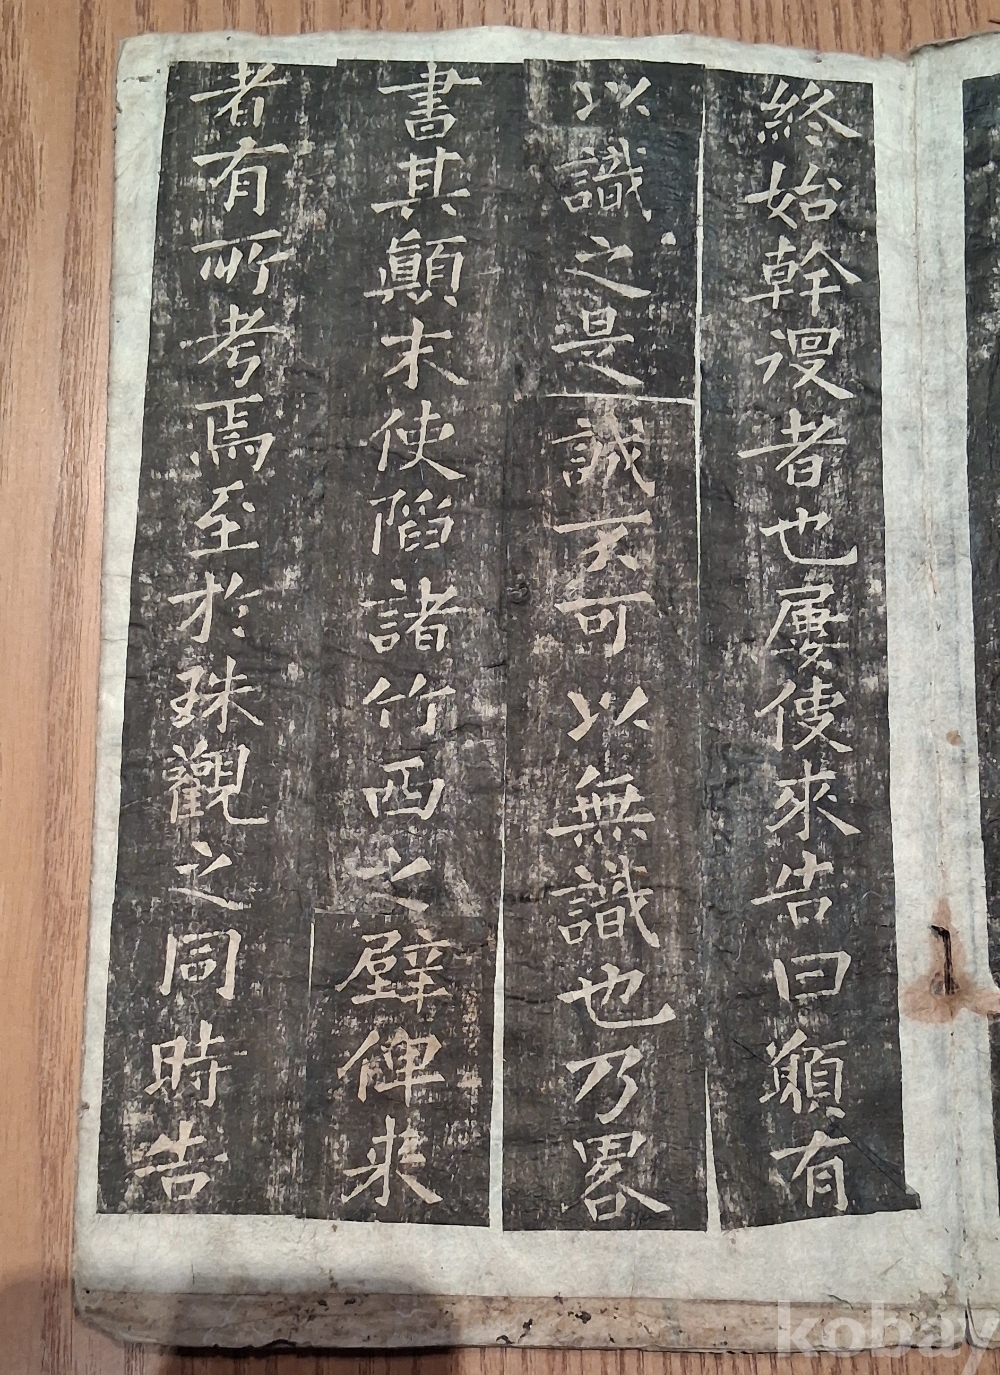 終始幹謾者也屢使來告曰願有
以識之是誠不可以無識也乃畧
書其顚末使䧟諸竹西之壁俾来
者有所考焉至於殊觀之同時告
kobay